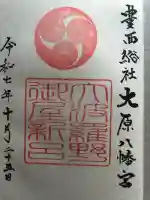 豊西総社 大原八幡宮
大波羅野
御屋新
令和七年十月二十五日